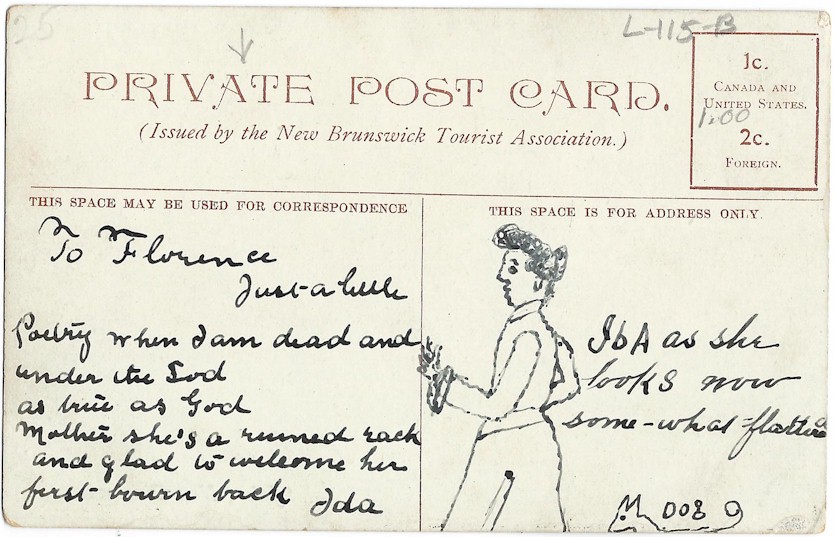 25
L-115-B
PRIVATE POST CARD.
(Issued by the New Brunswick Tourist Association.)
1c.
CANADA AND
UNITED STATES.
1.00
2c.
FOREIGN.
THIS SPACE MAY BE USED FOR CORRESPONDENCE
To Florence
Just-a little
Poetry when I am dead and
under the Sod
as true as God
Mother she's a ruined rack
and glad to welcome her
first-bourn back
Ida
THIS SPACE IS FOR ADDRESS ONLY.
IdA as she
looks now
some-what-flatt